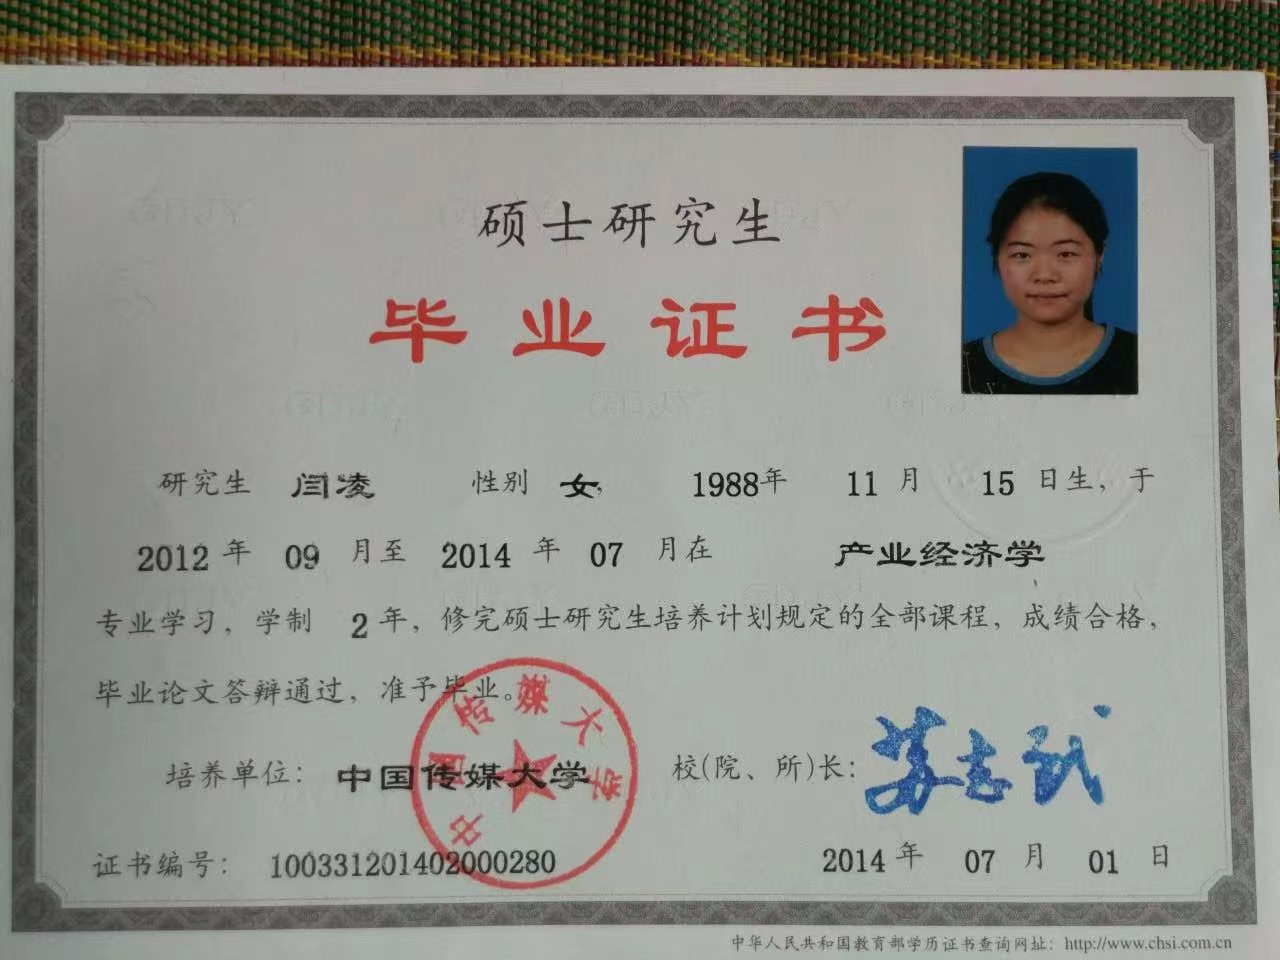 硕士研究生
毕业证书
研究生 闫凌 性别 女, 1988年 11月 15日生, 于
2012年 09月至 2014年 07月在 产业经济学
专业学习, 学制 2年, 修完硕士研究生培养计划规定的全部课程, 成绩合格,
毕业论文答辩通过, 准予毕业。
中国传媒大学
培养单位: 中国传媒大学 校(院、所)长: 苏志武
证书编号: 100331201402000280 2014年 07月 01日
中华人民共和国教育部学历证书查询网址: http://www.chsi.com.cn